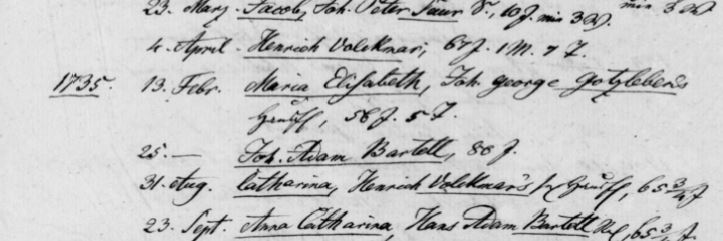 23. Marz. Jacob, Joh. Peter Faur S., 10 J. min 3 W. min 3 W
4. April. Henrich Volckmar, 67 J. 1 M. 7 T.
1735. 13. Febr. Maria Elisabeth, Joh. George Gotzleben's
58 J. 5 T.
25. — Joh. Adam Bartell, 88 J.
31. Aug. Catharina, Henrich Volckmar's 65 3/4 J
23. Sept. Anna Catharina, Hans Adam Bartell 65 3/ J.